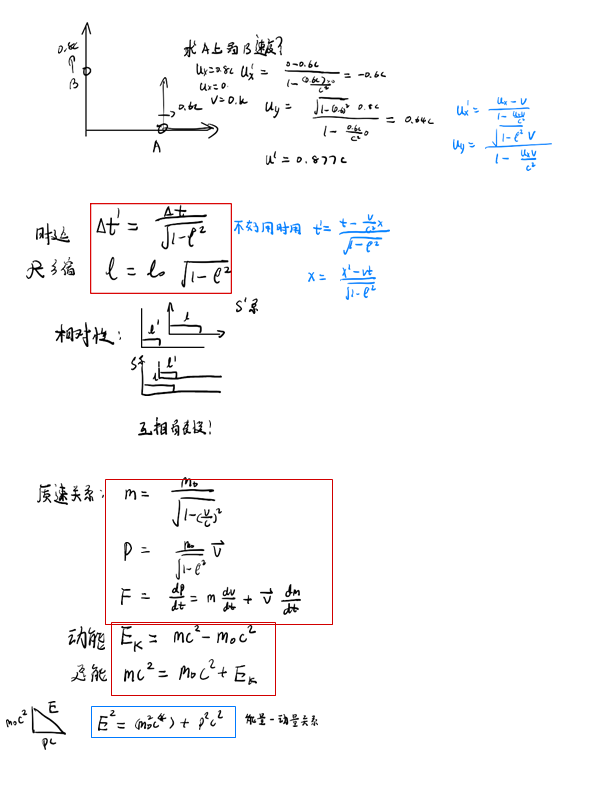 0.8c
B
0.6c
A
求A上为B速度?
Uy=0.8c Ux' = (0-0.6c)/(1-(0.6c)×0/c²) = -0.6c
Ux=0
V=0.6c
Uy = (√(1-(0.6)²) 0.8c)/(1-(0.6c/c²)0) = 0.64c
U' = 0.877c
Ux' = (Ux-V)/(1-UxV/c²)
Uy = (√(1-ℓ²) V)/(1-UxV/c²)
Δt' = Δt/√(1-ℓ²)
尺缩 l = l₀ √(1-ℓ²)
不同时用 t' = (t-(v/c²)x)/√(1-ℓ²)
x = (x'-vt)/√(1-ℓ²)
S'系
相对性:
l' l
S
l l'
互相!
质速关系: m = m₀/√(1-(v/c)²)
P = (m₀/√(1-ℓ²)) V⃗
F = dp/dt = m dv/dt + V⃗ dm/dt
动能 Eₖ = mc²-m₀c²
能 mc² = m₀c²+Eₖ
m₀c² E
pc
E² = (m₀²c⁴) + p²c² 能量-动量关系